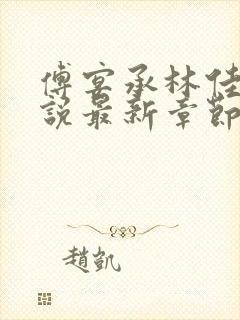 傅宴承林佳
說最新章節
趙凱